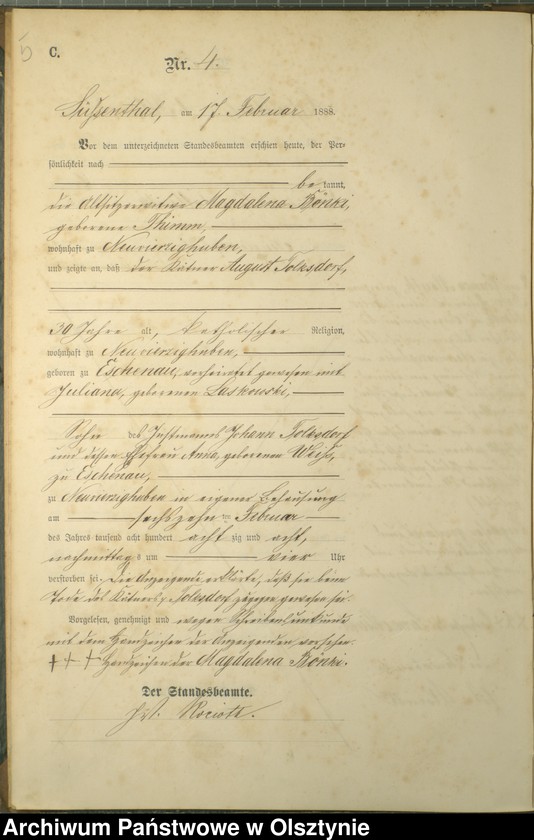 5
C.
Nr. 4.
Süssenthal, am 17. Februar 1888.
Vor dem unterzeichneten Standesbeamten erschien heute, der Per-
sönlichkeit nach
be kannt,
die Altsitzerwitwe Magdalena Bönki,
geborene Thimm,
wohnhaft zu Neuvierzighuben,
und zeigte an, daß der Kätner August Tolksdorf,
30 Jahre alt, katholischer Religion,
wohnhaft zu Neuvierzighuben,
geboren zu Eschenau, verheiratet gewesen mit
Juliana, geborenen Laskowski,
Sohn des Instmanns Johann Tolksdorf
und dessen Ehefrau Anna, geborenen Weiß,
zu Eschenau,
zu Neuvierzighuben in eigener Behausung
am sechszehn ten Februar
des Jahres tausend acht hundert acht zig und acht,
nachmittag s um vier Uhr
verstorben sei. Die Anzeigende erklärte, daß sie beim
Tode des Kätners Tolksdorf zugegen gewesen sei.
Vorgelesen, genehmigt und wegen Schreibensunkunde
mit dem Handzeichen der Anzeigenden versehen.
+ + + Handzeichen der Magdalena Bönki.
Der Standesbeamte.
Archiwum Państwowe w Olsztynie